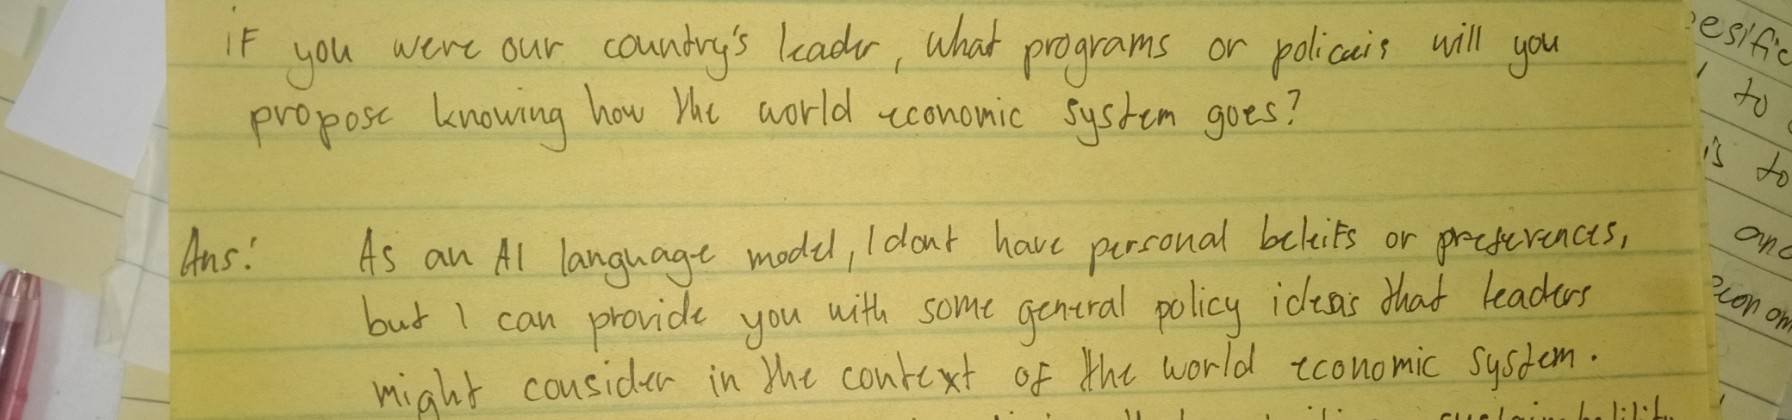 IF you were our country's leader, what programs or policais will you
propose knowing how the world economic system goes?
Ans: As an AI language model, I dont have personal beleifs or preferences,
but I can provide you with some general policy ideas that leaders
might consider in the context of the world economic system.
esific
to
is to
and
econom